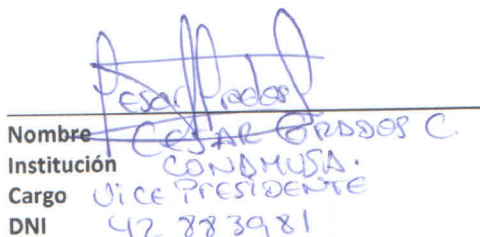 Cesar Prados
Nombre CESAR GRADOS C.
Institución CONDMUSA.
Cargo VICE PRESIDENTE
DNI 42 883981